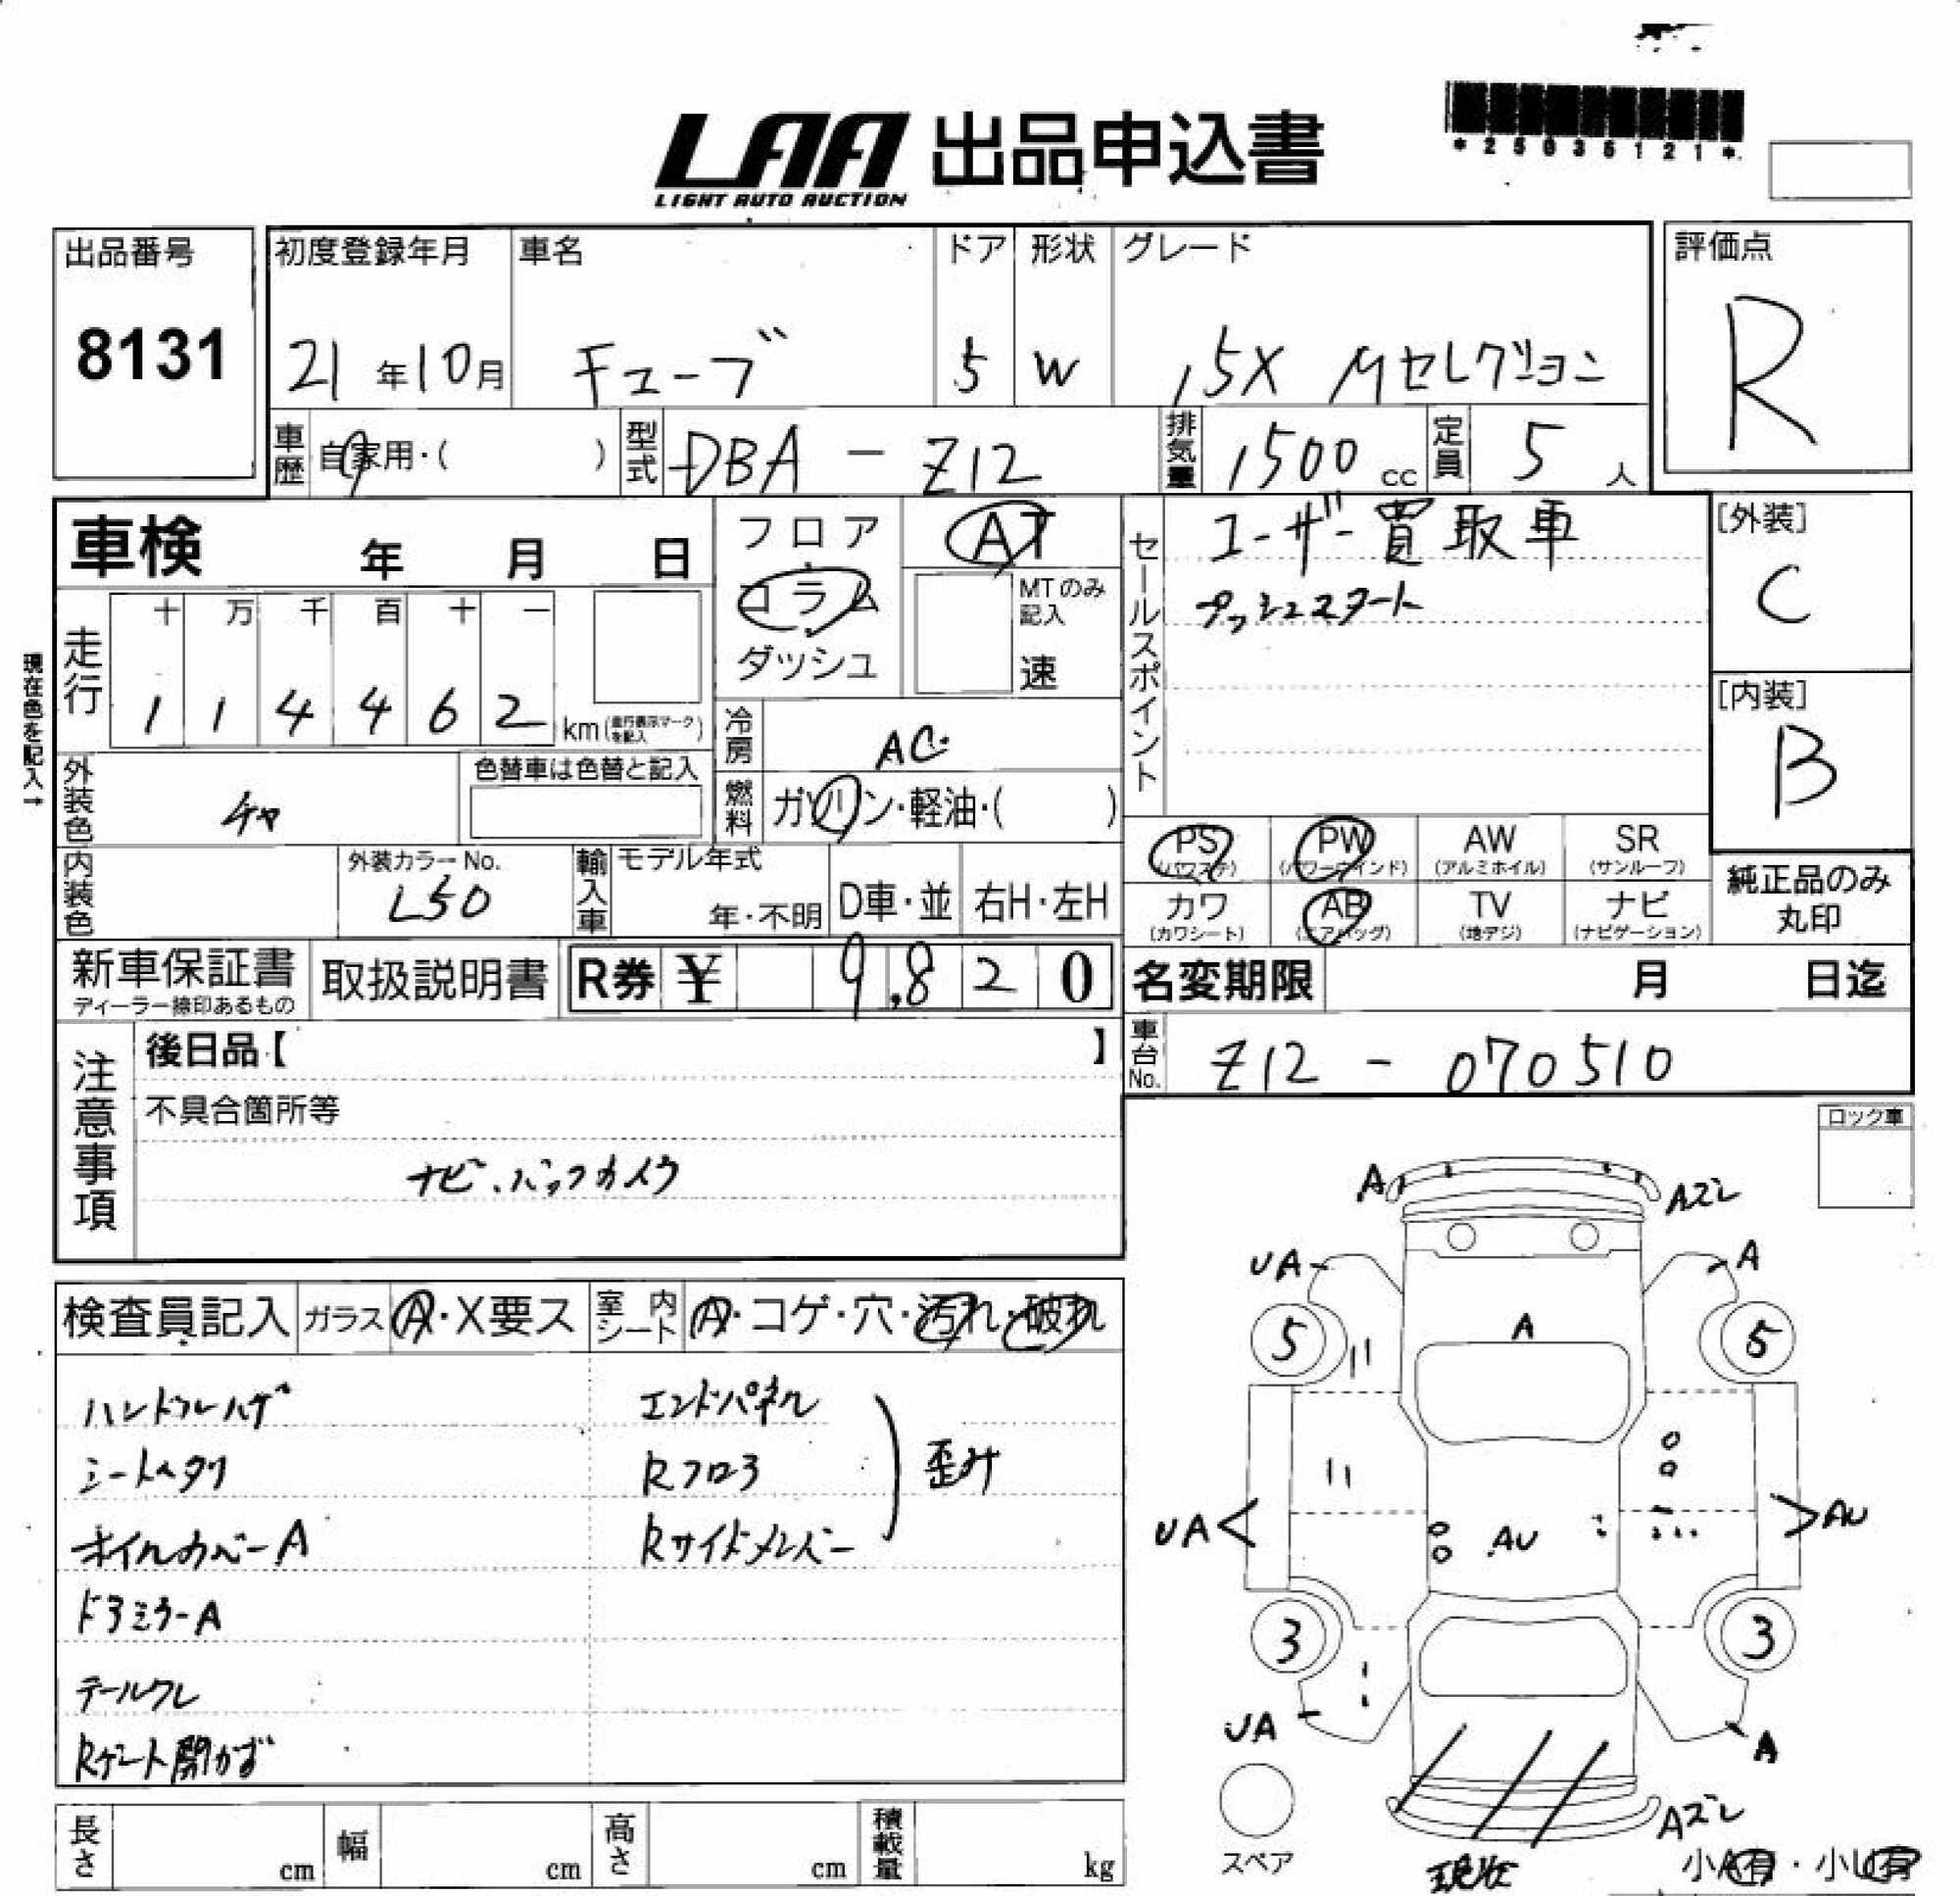 LAA 出品申込書
LIGHT AUTO AUCTION
*25036121*
出品番号
8131
初度登録年月
21年10月
車名
キューブ
ドア
5
形状
W
グレード
15X Mセレクション
評価点
R
車歴
自家用・( )
型式
DBA - Z12
排気量
1500 cc
定員
5 人
車検 年 月 日
フロア
コラム
ダッシュ
AT
MTのみ記入
速
セールスポイント
ユーザー買取車
プッシュスタート
[外装]
C
[内装]
B
現在色を記入→
走行
十 万 千 百 十 一
1 1 4 4 6 2 km(走行表示マークを記入)
冷房
AC
燃料
ガソリン・軽油・( )
外装色
チャ
色替車は色替と記入
内装色
外装カラーNo.
L50
輸入車
モデル年式
年・不明
D車・並
右H・左H
PS (パワステ)
PW (パワーウインド)
AW (アルミホイル)
SR (サンルーフ)
カワ (カワシート)
AB (エアバッグ)
TV (地デジ)
ナビ (ナビゲーション)
純正品のみ丸印
新車保証書
ディーラー捺印あるもの
取扱説明書
R券 ¥ 9,820
名変期限 月 日迄
車台No.
Z12 - 070510
注意事項
後日品【 】
不具合箇所等
ナビ、バックカメラ
ロック車
検査員記入
ガラス A・X要ス
室内シート A・コゲ・穴・汚れ・破れ
ハンドルハゲ
シートヘタリ
ホイルカバーA
ドアミラーA
テールワレ
Rゲート開かず
エンドパネル
Rフロア
Rサイドメンバー
歪み
A
Aズレ
UA
A
5
A
5
UA
AU
AU
3
3
UA
A
Aズレ
スペア
現状
小A有・小U有
長さ cm
幅 cm
高さ cm
積載量 kg